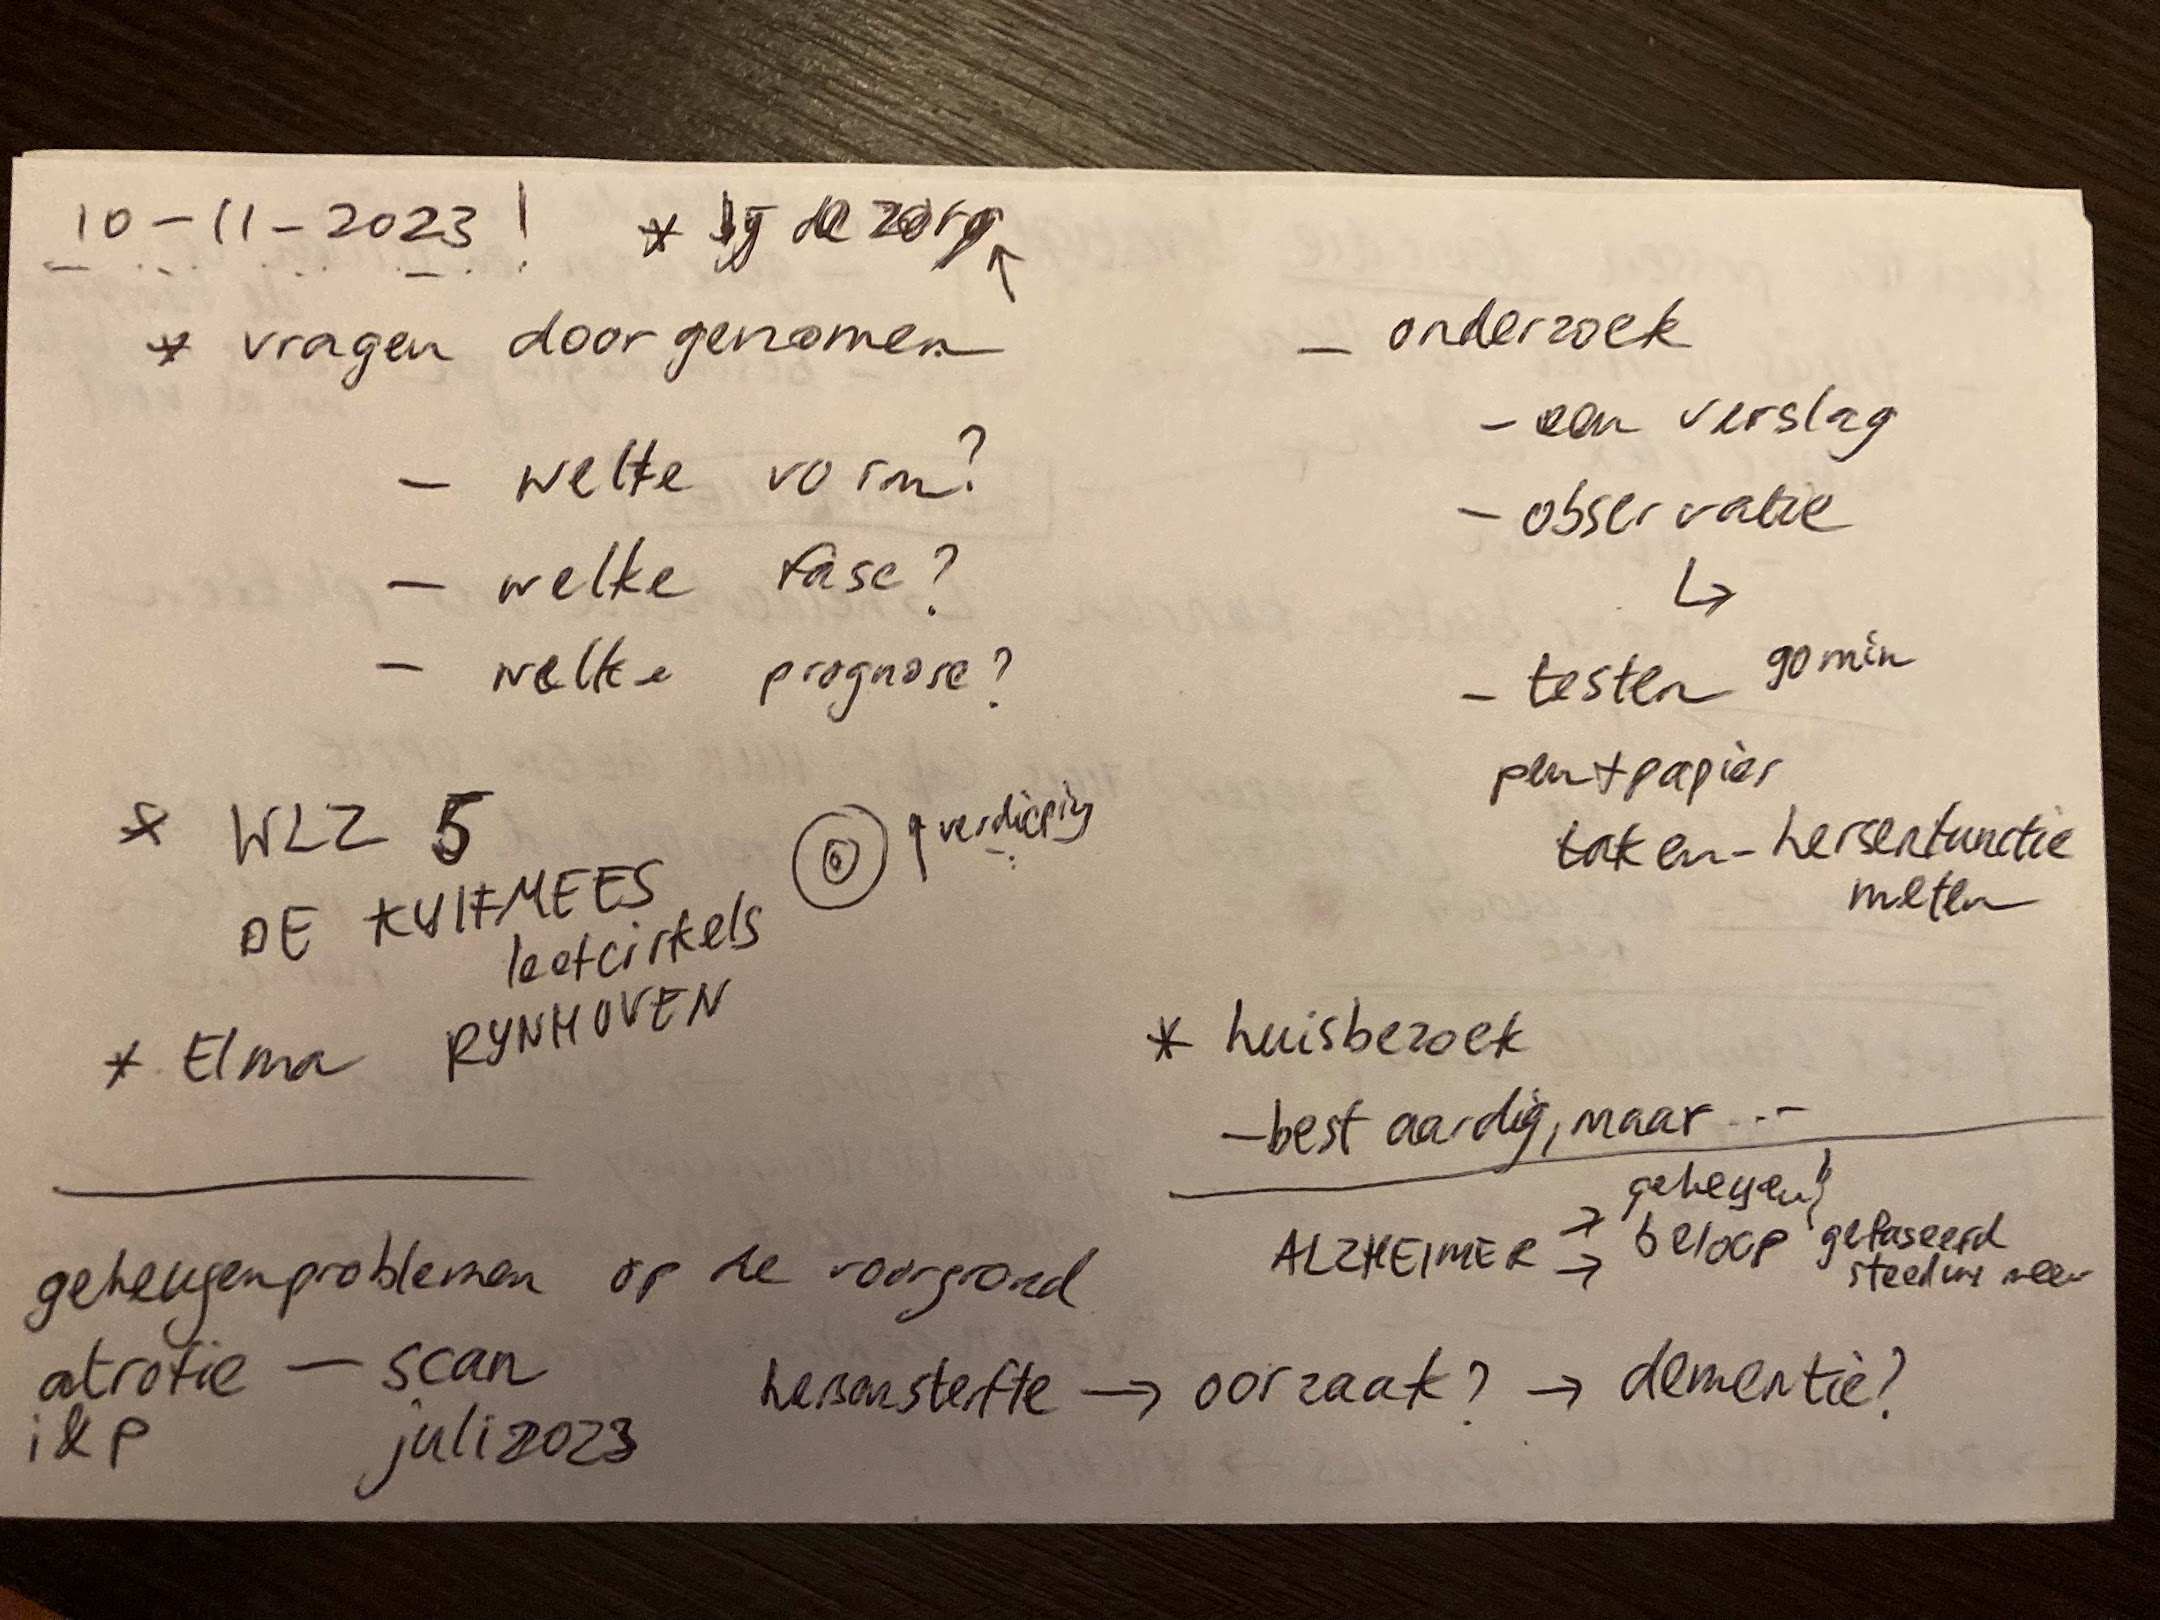 10-11-2023! * bij de zorg
* vragen doorgenomen
- welke vorm?
- welke fase?
- welke prognose?
* WLZ 5
verdieping
DE KUIFMEES
leefcirkels
* Elma RYNHOVEN
- onderzoek
- een verslag
- observatie
- testen 90 min
pen + papier
taken - hersenfunctie
meten
* huisbezoek
- best aardig, maar ...
geheugenproblemen op de voorgrond
atrofie - scan
juli 2023
ALZHEIMER → geheugen!
→ beloop gefaseerd
steeds meer
hersensterfte → oorzaak? → dementie?